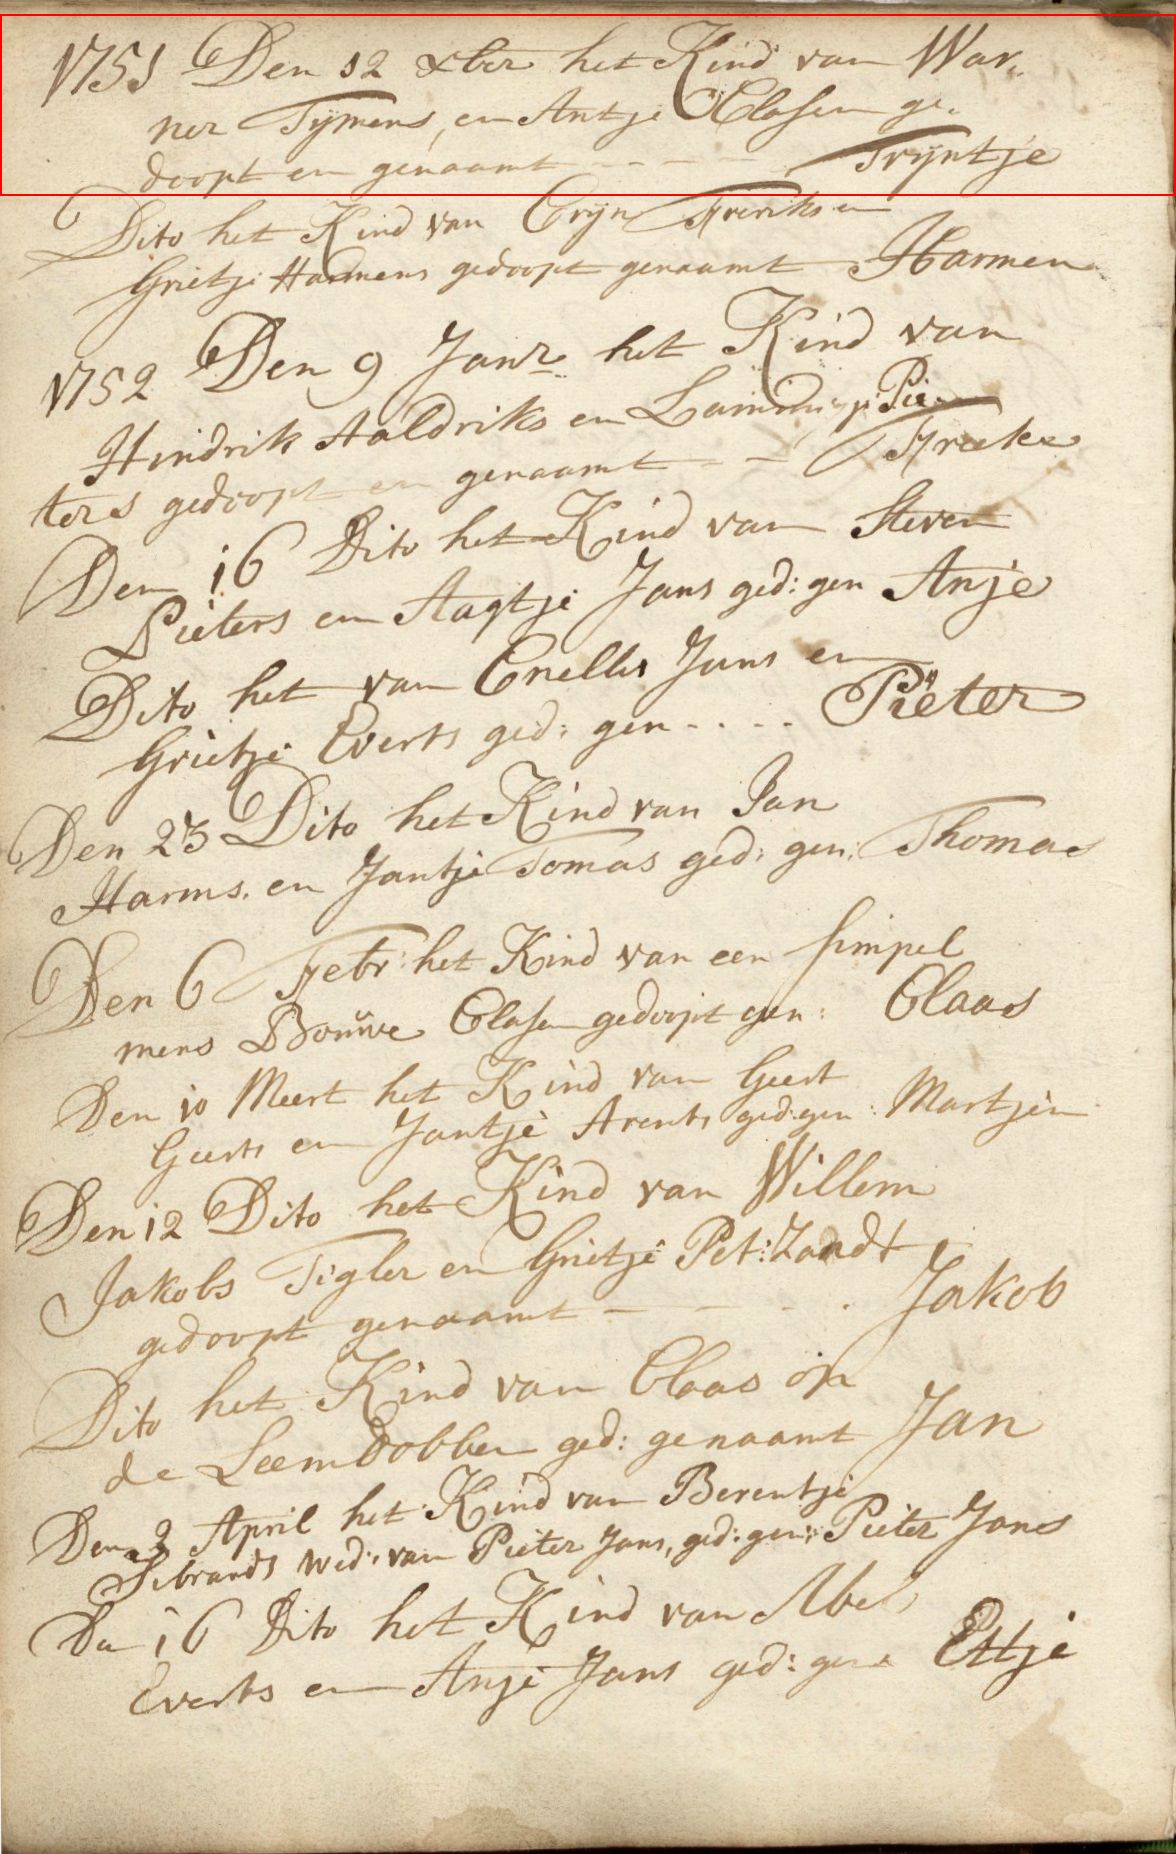 1751 Den 12 xber het Kind van War,,
ner Tijmens, en Antje Clasen ge,,
doopt en genaamt - - - - Trijntje
Dito het Kind van Crijn Freriks en
Grietje Harmens gedoopt genaamt Harmen
1752 Den 9 Janr het Kind van
Hindrik Aaldriks en Lammigje Pie
ters gedoopt en genaamt - - Freeke
Den 16 Dito het Kind van Steven
Pieters en Aagtje Jans ged: gen Anje
Dito het van Cnellis Jans en
Grietje Everts ged: gen - . . . Pieter
Den 23 Dito het Kind van Jan
Harms. en Jantje Tomas ged: gen: Thomas
Den 6 Febr: het Kind van een simpel
mens Douwe Clasen gedoopt gen: Claas
Den 10 Meert het Kind van Geert
Geerts en Jantje Arents ged: gen: Martjen
Den 12 Dito het Kind van Willem
Jakobs Tigler en Grietje Pet: Zandt
gedoopt genaamt - - - . . Jakob
Dito het Kind van Claas op
de Leemdobben ged: genaamt Jan
Den 2 April het Kind van Berentje
Sibrands wed: van Pieter Jans, ged: gen: Pieter Jans
Den 16 Dito het Kind van Abel
Everts en Anje Jans ged: gen: Ettje